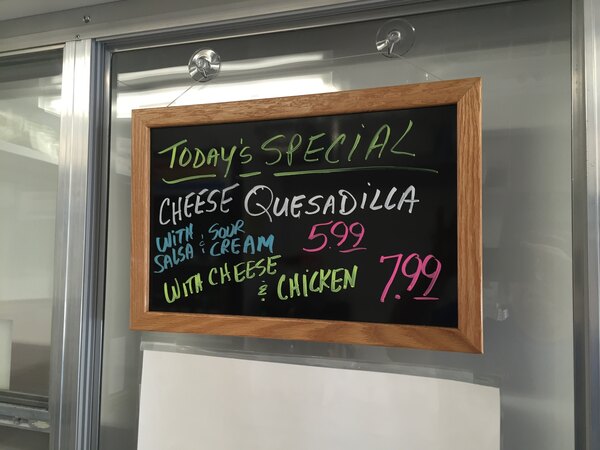 TODAY'S SPECIAL
CHEESE QUESADILLA
WITH SALSA & SOUR CREAM 5.99
WITH CHEESE & CHICKEN 7.99